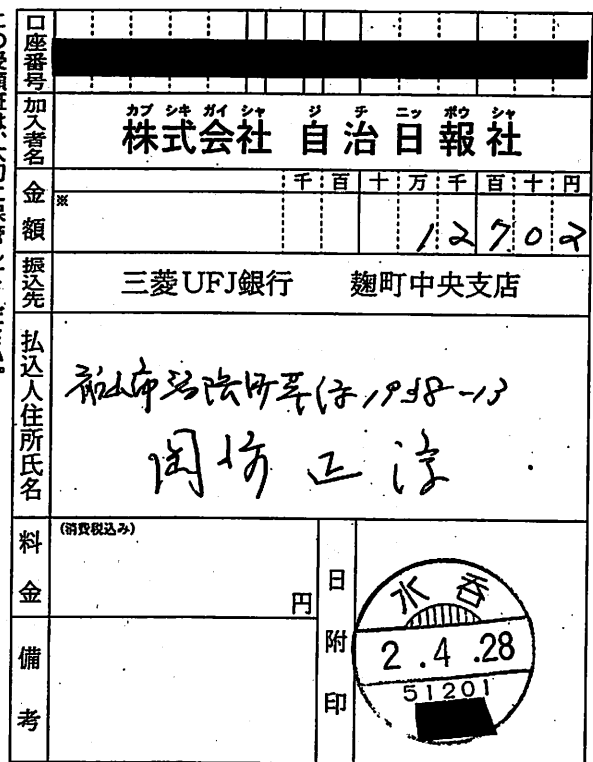 この受領証は、大切に保管してください。
口座番号
加入者名
カブ シキ ガイ シャ ジ チ ニッ ポウ シャ
株式会社 自治日報社
金額
千百十万千百十円
※
12702
振込先
三菱UFJ銀行 麹町中央支店
払込人住所氏名
1938-13
正淳
料金
(消費税込み)
円
備考
日附印
水呑
2.4.28
51201